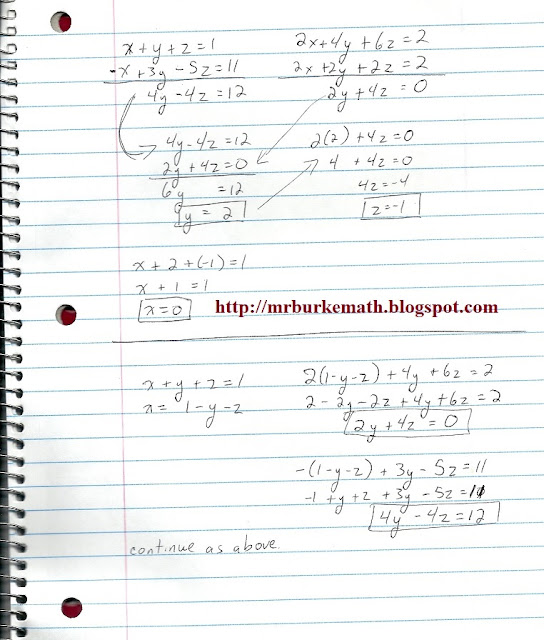 x+y+z=1
-x+3y-5z=11
4y-4z=12
2x+4y+6z=2
2x+2y+2z=2
2y+4z=0
4y-4z=12
2y+4z=0
6y =12
y = 2
2(2)+4z=0
4 +4z=0
4z=-4
z=-1
x+2+(-1)=1
x+1=1
x=0
http://mrburkemath.blogspot.com
x+y+z=1
x= 1-y-z
2(1-y-z)+4y+6z=2
2-2y-2z+4y+6z=2
2y+4z=0
-(1-y-z)+3y-5z=11
-1+y+z+3y-5z=11
4y-4z=12
continue as above